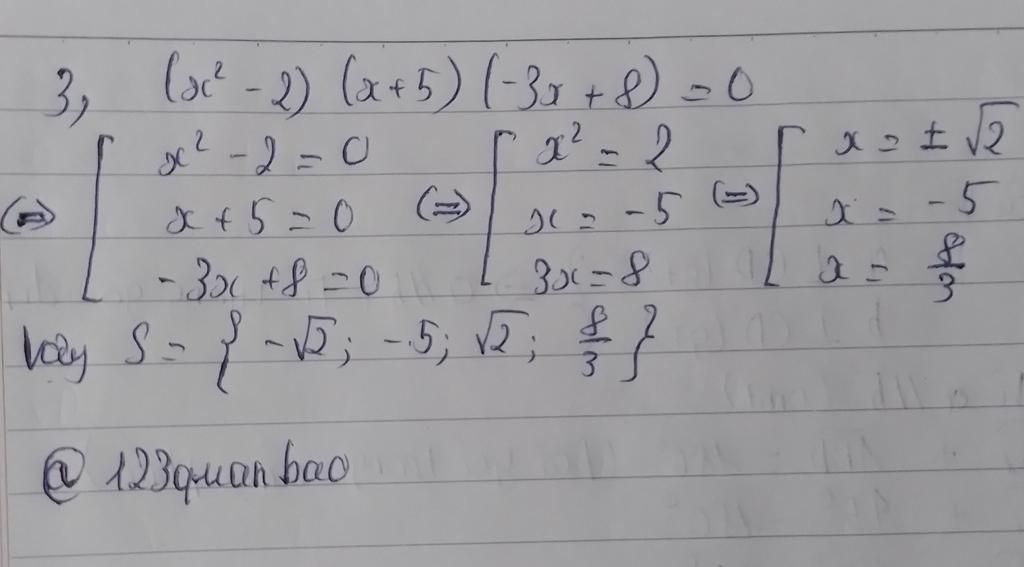 3, (x² - 2) (x + 5) (-3x + 8) = 0
(⇔) [ x² - 2 = 0 (⇔) [ x² = 2 (⇔) [ x = ± √2
x + 5 = 0 x = -5 x = -5
-3x + 8 = 0 3x = 8 x = 8/3
Vậy S = { -√2; -5; √2; 8/3 }
@ 123quanbao